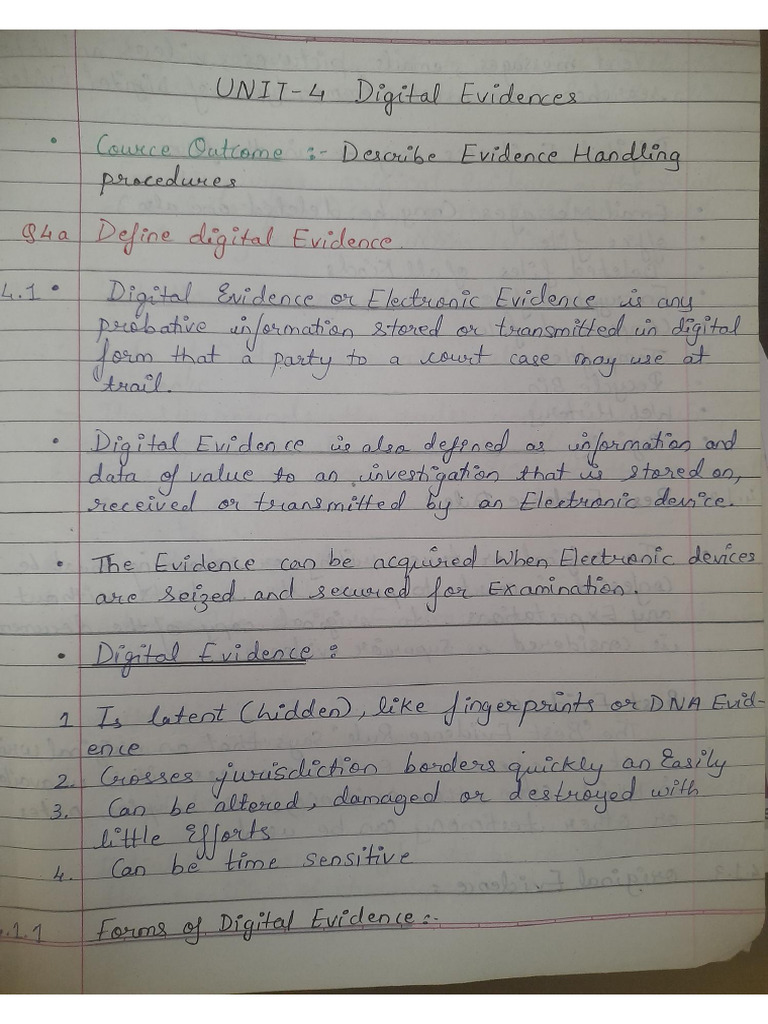 UNIT-4 Digital Evidences
• Cource Outcome :- Describe Evidence Handling
procedures
Q4a Define digital Evidence.
4.1 • Digital Evidence or Electronic Evidence is any
probative information stored or transmitted in digital
form that a party to a court case may use at
trail.
• Digital Evidence is also defined as information and
data of value to an investigation that is stored on,
received or transmitted by an Electronic device.
• The Evidence can be acquired when Electronic devices
are seized and secured for Examination.
• Digital Evidence :
1 Is latent (hidden), like fingerprints or DNA Evid-
ence
2. Crosses jurisdiction borders quickly an Easily
3. Can be altered, damaged or destroyed with
little Efforts
4. Can be time sensitive
.1.1 Forms of Digital Evidence :-